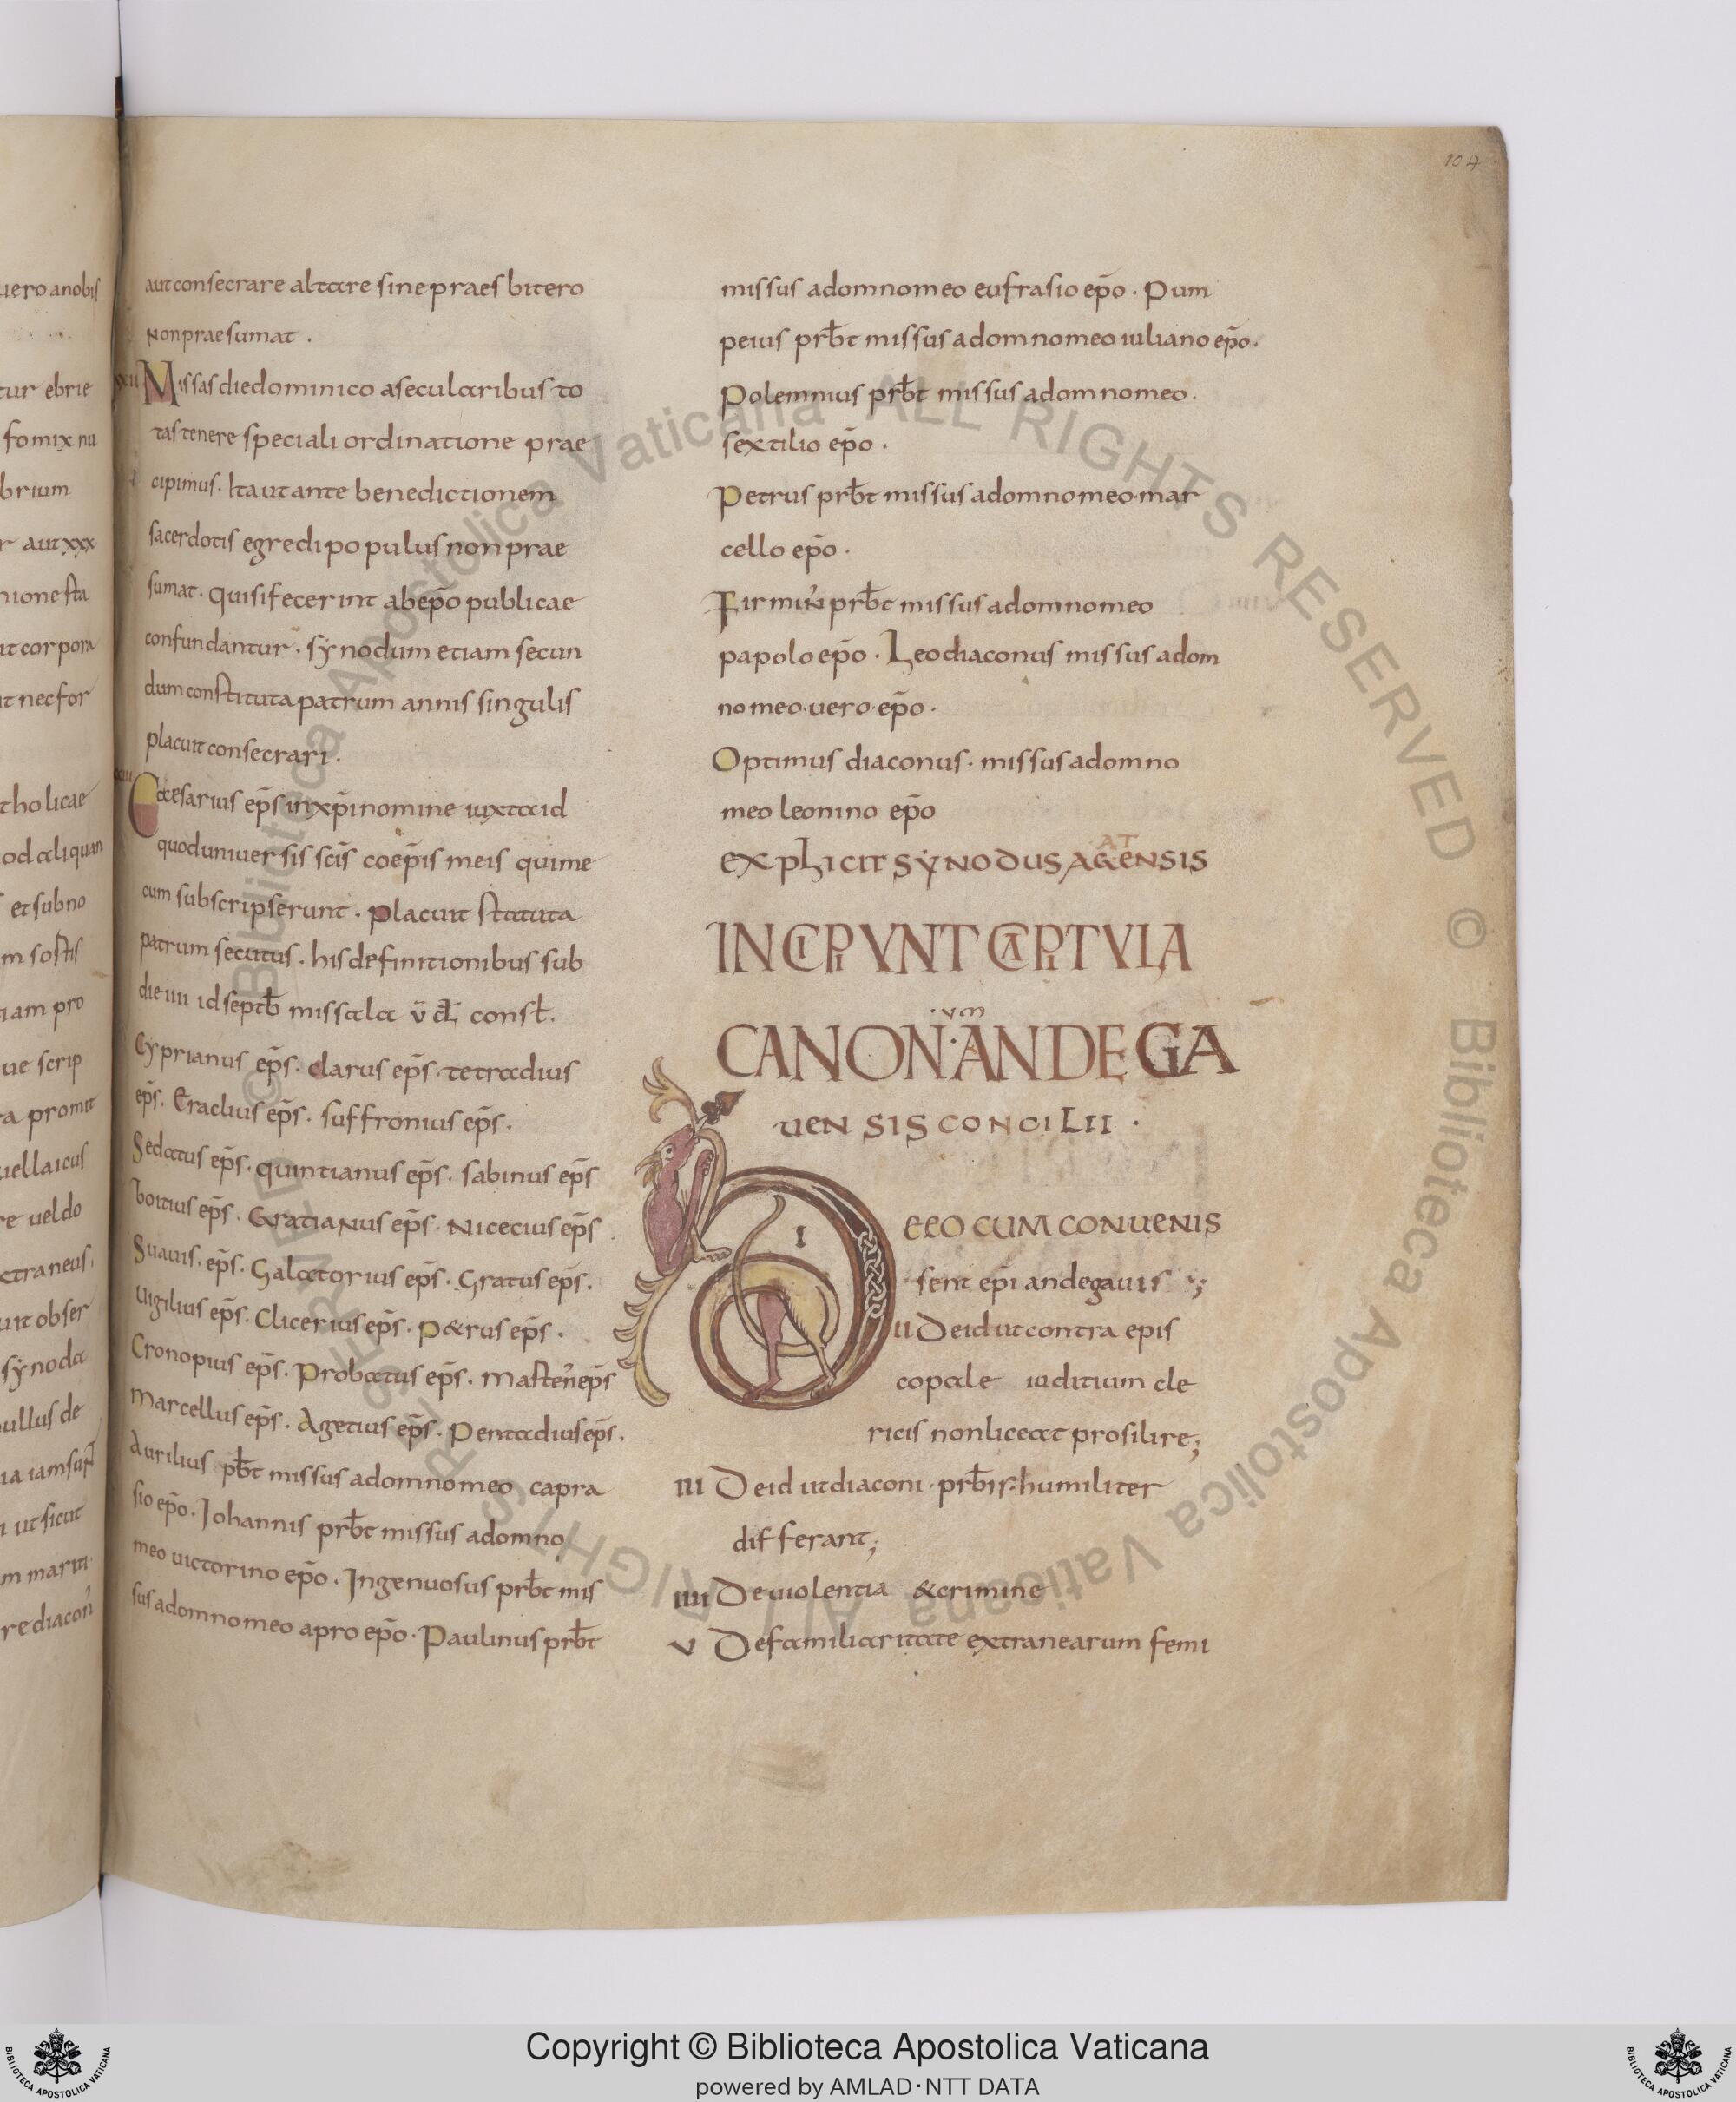 104
uero anobis
tur ebrie
fomix nu
brium
r aut xxx
nionesta
ut corpora
ut necfor
tholicae
od aliquan
et subno
m sostis
tiam pro
ue scrip
ra promit
uellaicus
re ueldo
ctraneus,
uit obser
synoda
nullus de
ut sicut
m mariti
re diacon̄
aut consecrare altare sine praesbitero
non praesumat.
xxii Missas die dominico a secularibus to
tas tenere speciali ordinatione prae
cipimus. Ita ut ante benedictionem
sacerdotis egredi populus non prae
sumat. qui si fecerint ab ep̄o publicae
confundantur. synodum etiam secun
dum constituta patrum annis singulis
placuit consecrari.
xxiii Caesarius ep̄s in xp̄i nomine iuxta id
quod uniuersis sc̄is coep̄is meis qui me
cum subscripserunt. placuit statuta
patrum secutus. his definitionibus sub
die iiii id septb̄ missala v̄ cl̄ const̄.
Cyprianus ep̄s. clarus ep̄s. tetradius
ep̄s. Eraclius ep̄s. suffronius ep̄s.
Sedatus ep̄s. quintianus ep̄s. sabinus ep̄s
boitius ep̄s. Gratianus ep̄s. Nicecius ep̄s
Suauis. ep̄s. Galatorius ep̄s. Gratus ep̄s.
Vigilius ep̄s. Clicerius ep̄s. P&rus ep̄s.
Cronopius ep̄s. Probatus ep̄s. Masten̄ ep̄s
Marcellus ep̄s. Agetius ep̄s. Pentadius ep̄s.
Aurilius pb̄t missus a domno meo capra
sio ep̄o. Iohannis prb̄t missus a domno
meo uictorino ep̄o. Ingenuosus prb̄t mis
sus a domno meo apro ep̄o. Paulinus prb̄t
missus a domno meo eufrasio ep̄o. Pum
peius prb̄t missus a domno meo iuliano ep̄o.
Polemnius prb̄t missus a domno meo.
sextilio ep̄o.
Petrus prb̄t missus a domno meo mar
cello ep̄o.
Firmin̄ prb̄t missus a domno meo
papolo ep̄o. Leo diaconus missus a dom
no meo. uero. ep̄o.
Optimus diaconus. missus a domno
meo leonino ep̄o
AT
EXPLICIT SYNODUS AGENSIS
INCIPIVNT CAPITVLA
vm
CANON̄. ANDEGA
UENSIS CONCILII.
I DE EO CUM CONUENIS
sent ep̄i andegauis ;
II De id ut contra epis
copale iuditium cle
ricis non liceat prosilire;
III De id ut diaconi. prb̄is. humiliter
differant;
IIII De uiolentia & crimine
V De familiaritate extranearum femi
© Biblioteca Apostolica Vaticana ALL RIGHTS RESERVED © Biblioteca Apostolica Vaticana ALL RIGHTS RESERVED
Copyright © Biblioteca Apostolica Vaticana
powered by AMLAD·NTT DATA
BIBLIOTECA APOSTOLICA VATICANA
BIBLIOTECA APOSTOLICA VATICANA